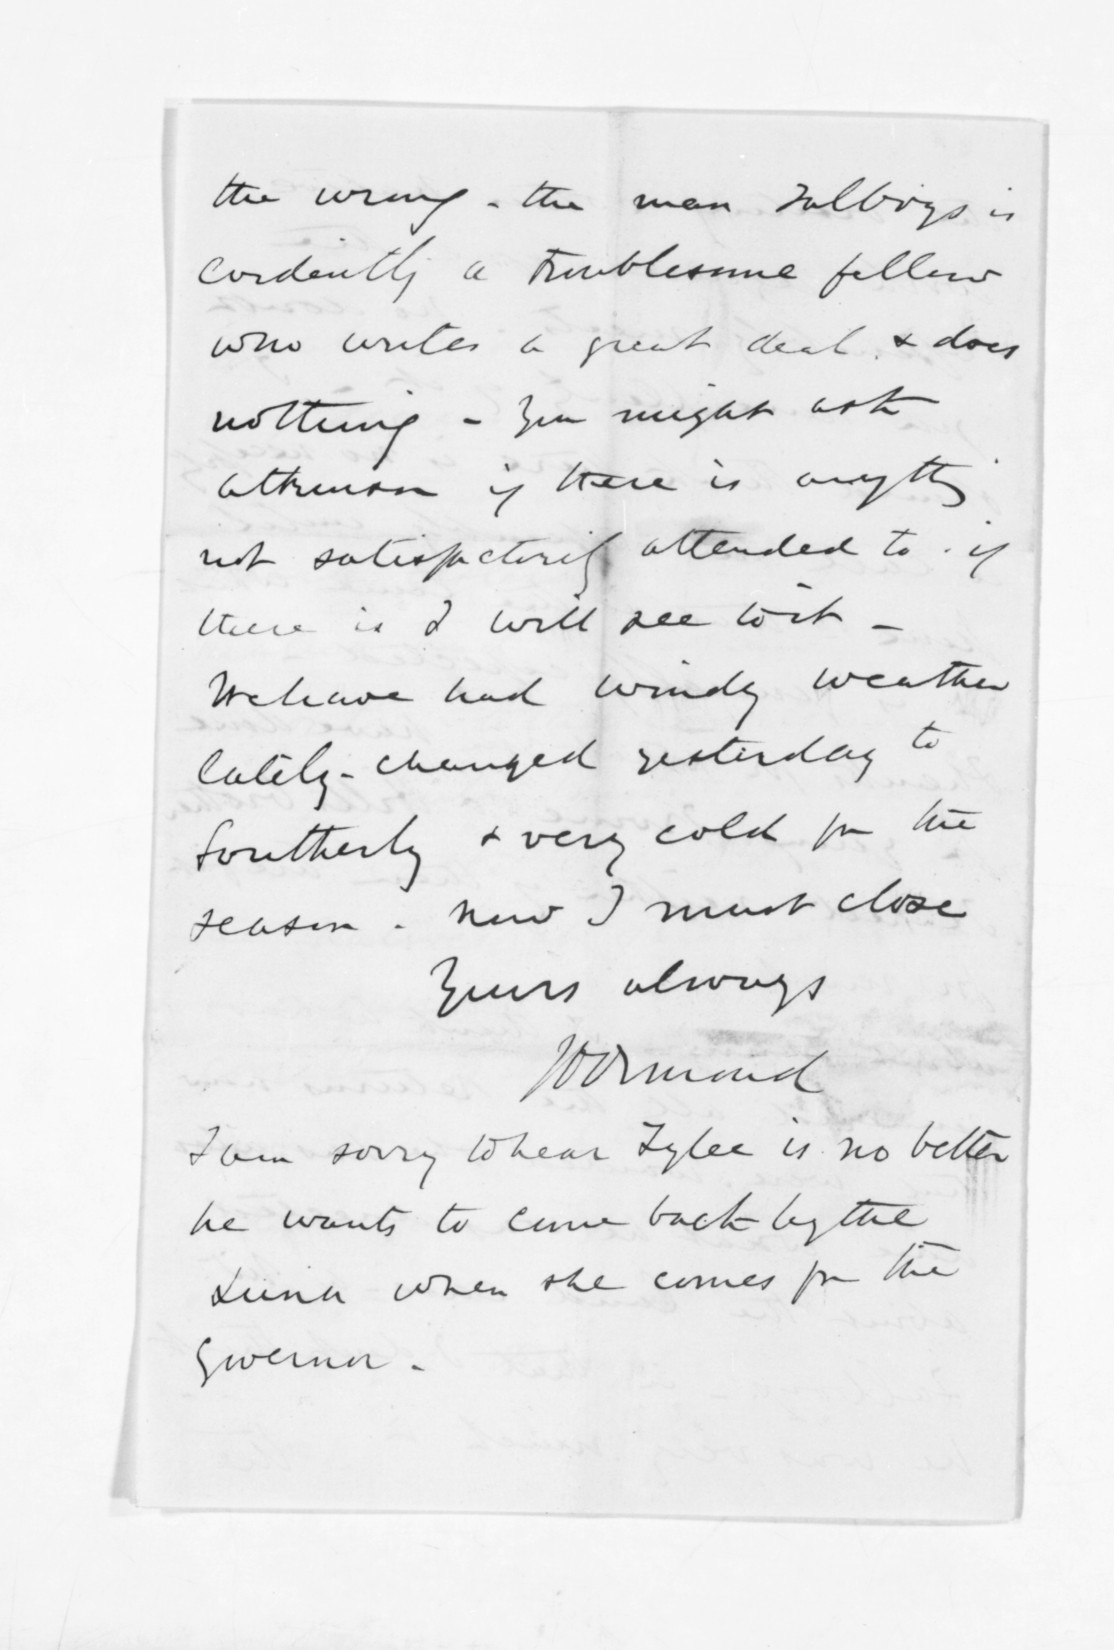 the wrong - the man Talboys is
evidently a troublesome fellow
who writes a great deal & does
nothing - You might ask
Atkinson if there is anythg
not satisfactorily attended to - if
there is I will see to it -
We have had windy weather
lately - changed yesterday to
Southerly & very cold for the
season - Now I must close
Yours always
JDOrmond
I am sorry to hear Tylee is no better
he wants to come back by the
Luna when she comes for the
Governor -